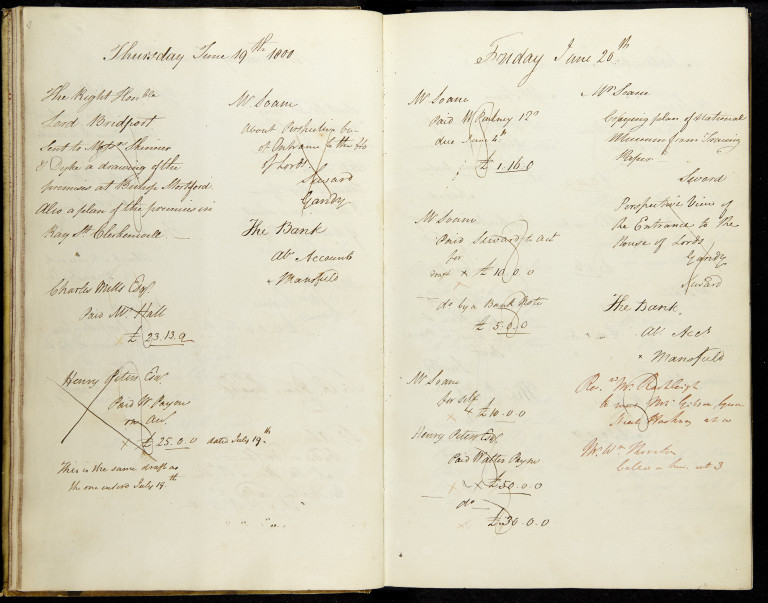 Thursday June 19th 1800
The Right Honble
Lord Bridport
Sent to Messrs Skinner
& Dyke a drawing of the
premises at Bishop Stortford.
Also a plan of the premises in
Ray St Clerkenwell
Charles Mills Esqr
Paid Mr Hall
£ 23.13.9
Henry Peters Esqr
Paid W. Payne
on Acct
x £ 25.0.0 dated July 19th
This is the same draft as
the one entered July 19th
Mr Soane
About Perspective
of Entrance to the Ho
of Lords
Seward
Gandy
The Bank
Abt Accounts
Mansfield
Friday June 20th
Mr Soane
Paid W.
due June 4th
£ 1.16.0
Mr Soane
Paid Seward to Acct
for
x £ 10.0.0
do by a Bank Note
£ 5.0.0
Mr Soane
for self
£ 10.0.0
Henry Peters Esqr
Paid Walter Payne
x x £50.0.0
do
x £ 30.0.0
Mr Soane
Copying plan of National
Museum from Tracing
Paper
Seward
Perspective View of
the Entrance to the
House of Lords
Gandy
x Seward
The Bank
Abt Accts
x Mansfield
Mr Rashleigh
Mrs Gibson
near Hackney at
Mr Wm Thornton
at 3